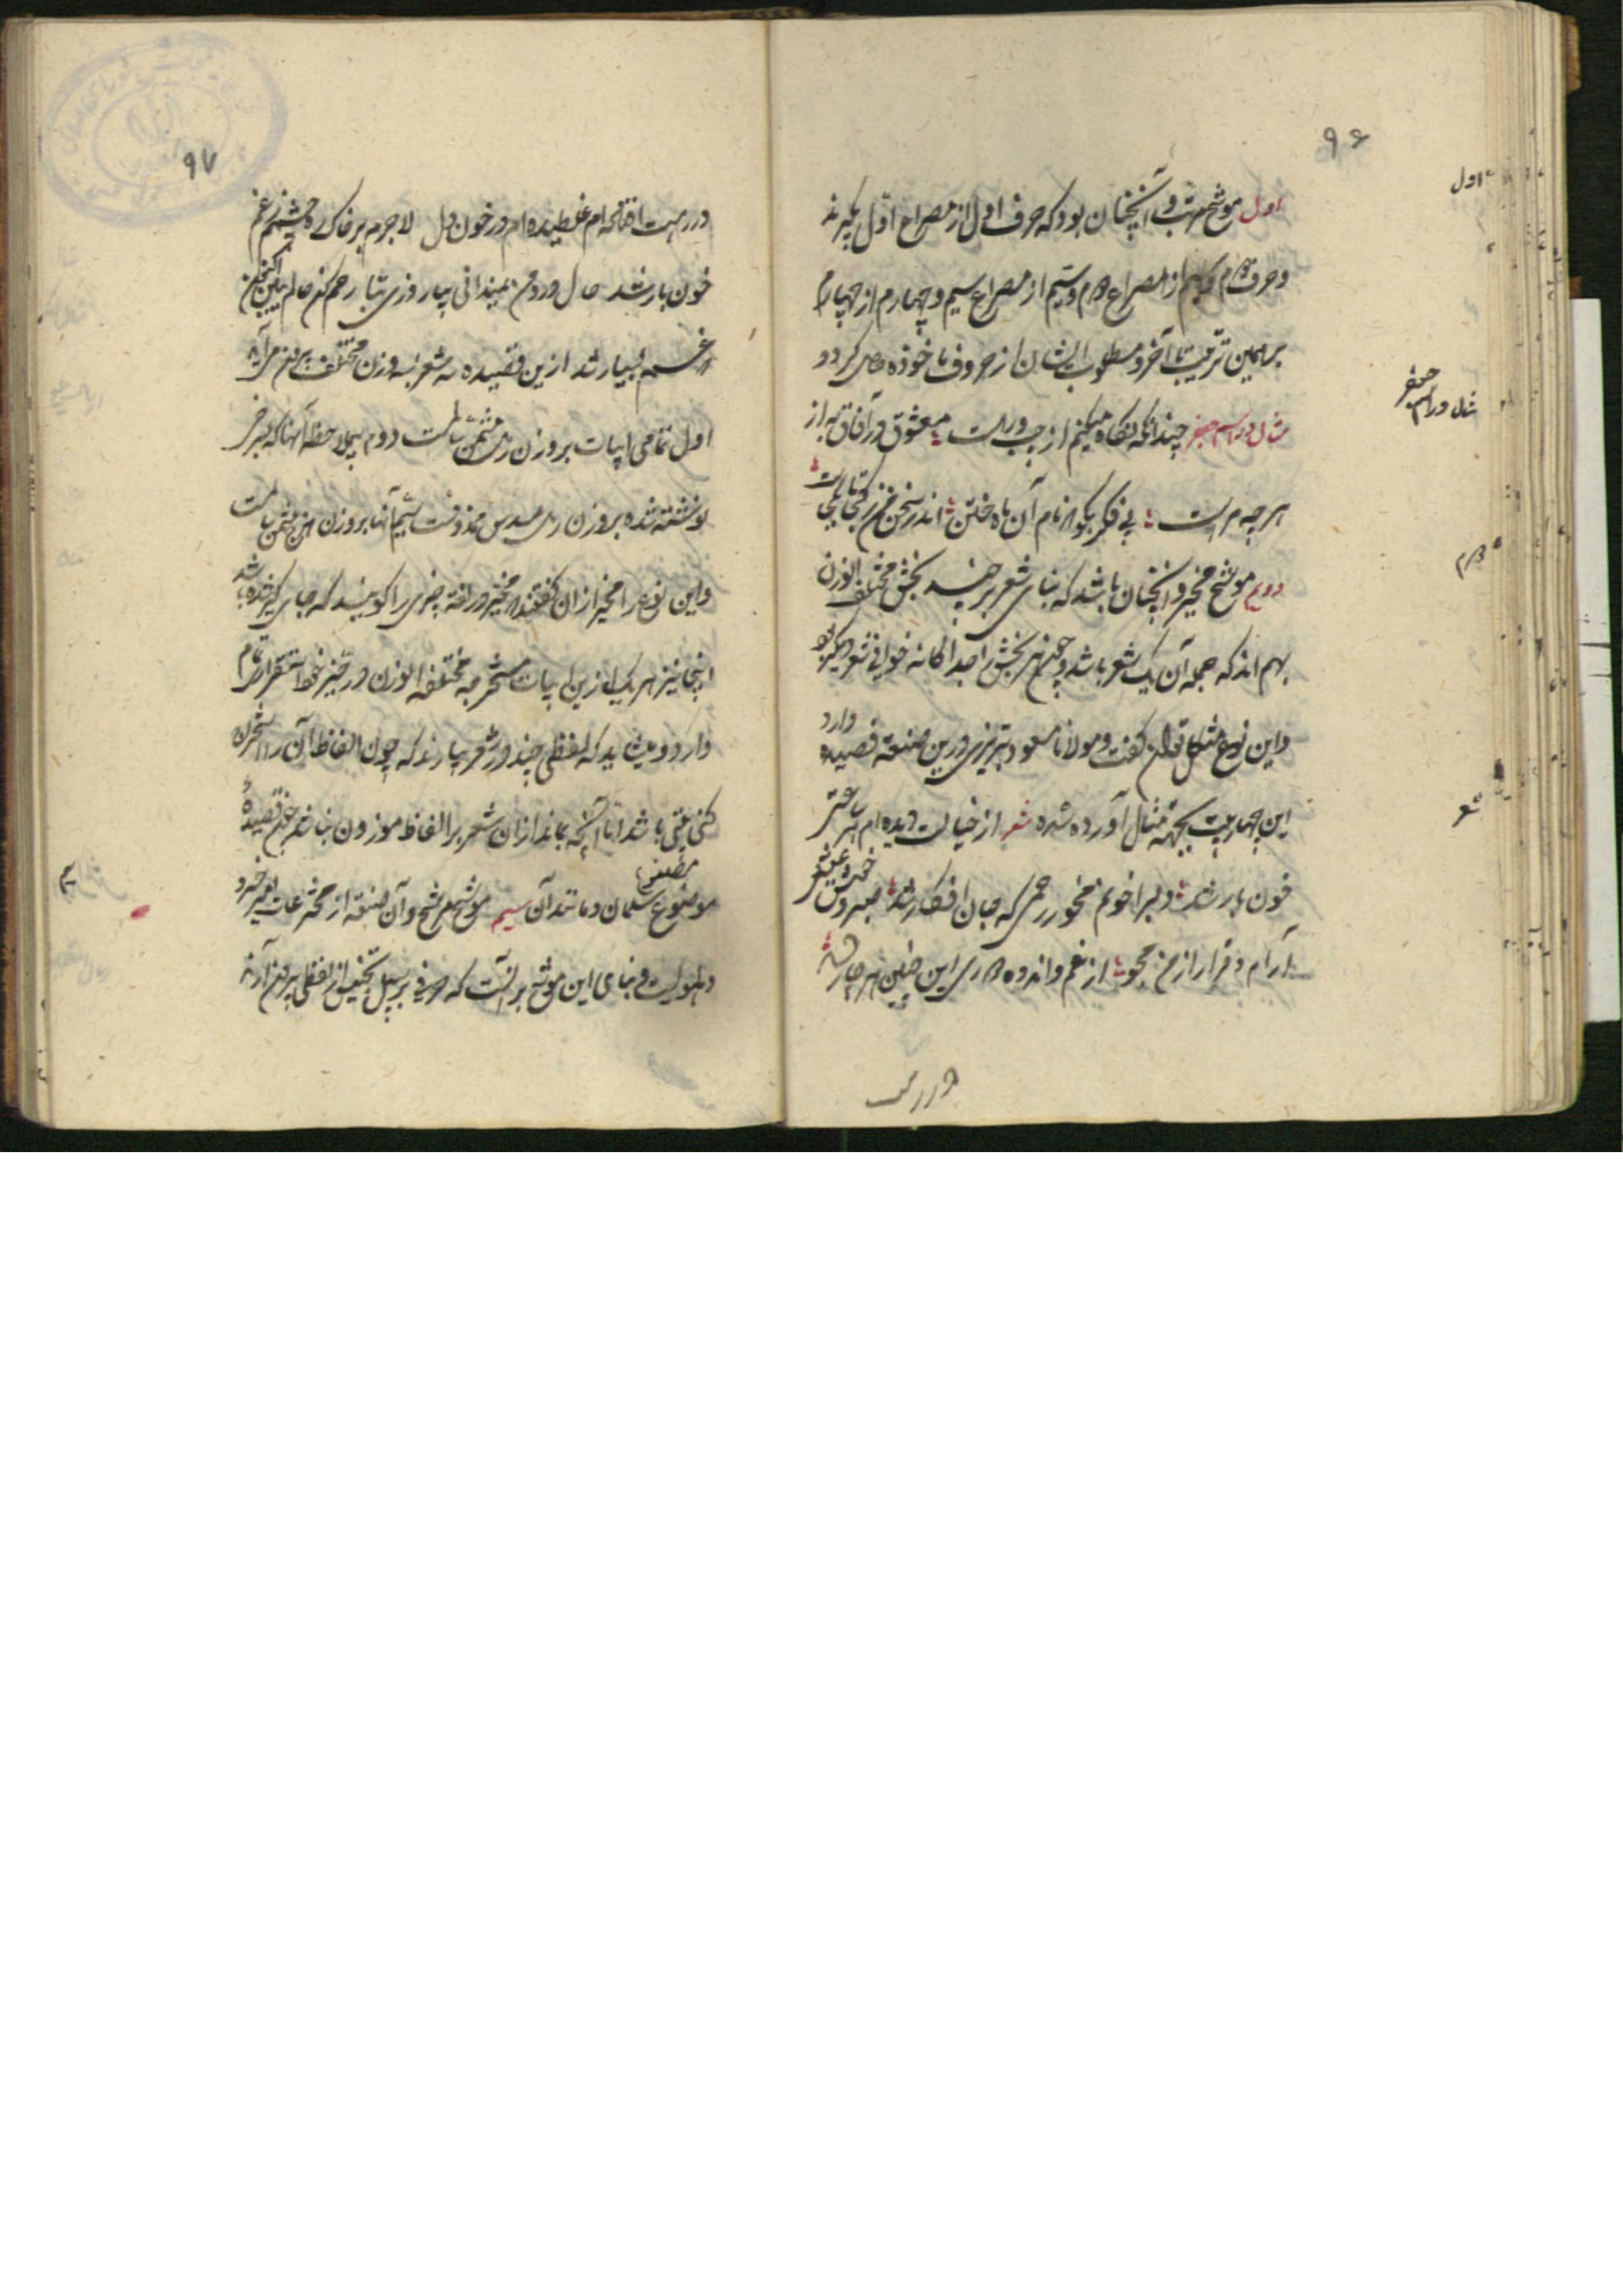 ۹۶
اول موشح مرتب و آنچنان بود که حرف اول از مصراع اول گیرند
و حرف دوم از مصراع دوم و سیم از مصراع سیم و چهارم از چهارم
بر همین ترتیب تا آخر و مطلوب ایشان از حروف ماخوذه حاصل گردد
مثال در اسم جعفر چندانکه نگاه میکنم از چپ و راست معشوق در آفاق به از
هر چه مراست بی فکر بگو نام آن ماه ختن اندر سخن
دویم موشح مخیر و آنچنان باشد که بنای شعر بر چند بخش مختلف الوزن
بهم اند که جمله آن یک شعر باشد و چون هر بخش را جداکانه خوانی شعر دیگر بود
و این نوع مشکل توان گفت و مولانا مسعود تبریزی درین صنعة قصیده دارد
این چهار بیت بجهة مثال آورده شده شعر از خیالت دیده ام هر ساعتی
خون بار شد دلبرا خونم مخور رحمی که جان افکار شد صبر و هوش
آرام و قرار از من مجو از غم و اندوه این چنین
در رهت
اول
مثال در اسم جعفر
دوم
شعر
۹۷
در رهت افتاده ام غلطیده ام در خون دل لاجرم بر خاک ره چشمم ز غم
خون بار شد حال درد من نمیدانی بیا روزی بتا رحم کن حالم ببین
غم بسیار شد ازین قصیده سه شعر بسه وزن مختلف بیرون می آید
اول تمامی ابیات بر وزن رمل مثمن سالمست دوم بیملاحظه آنها که بسرخی
نوشته شده بر وزن رمل مسدس محذوفست سیم آنها بر وزن هزج مثمن سالمست
و این نوع را مخیر از آن گفتند که مخیر در لغة چیزی را گویند که جای گیر شده باشد
اینجا نیز هر یک ازین ابیات مستخرجه مختلفة الوزن در حیز خود استقرار تمام
دارد و میشاید که لفظی چند در شعر بیارند که چون الفاظ آن را استخراج
کنی بیتی باشد اما آنچه بماند از آن شعر بر الفاظ موزون نباشد چون قصیدهٔ
موضوع سلمان و مانند آن سیم موشح مرشح و آن صنعة از مخترعات امیر خسرو
دهلویست و بنای این موشح بر آنست که حرفی بر سبیل تجنیس از لفظی بیرون آرند